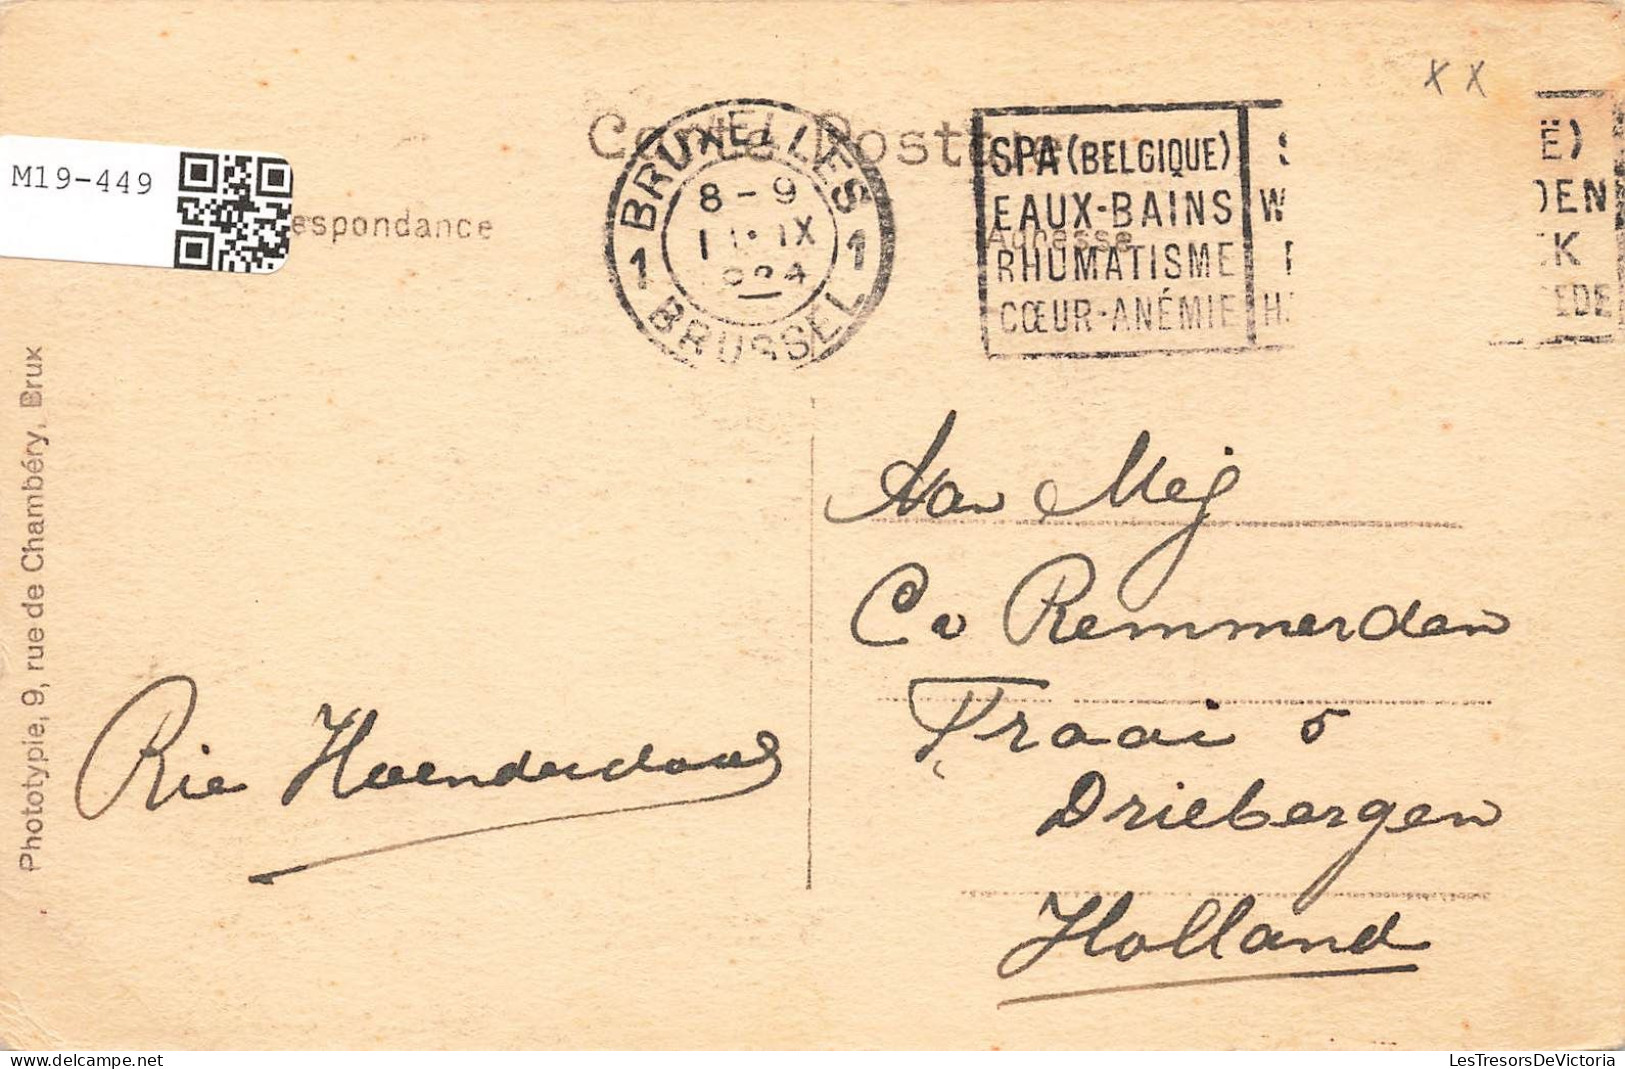 XX
Carte Postale
M19-449
BRUXELLES
8-9
IX
1924
1 1
BRUSSEL
SPA (BELGIQUE)
EAUX-BAINS
RHUMATISME
CŒUR-ANÉMIE
espondance
Adresse
Phototypie, 9, rue de Chambéry, Brux
Aan Mej
C v Remmerden
Traai 5
Driebergen
Holland
Rie
M19-449
LesTresorsDeVictoria